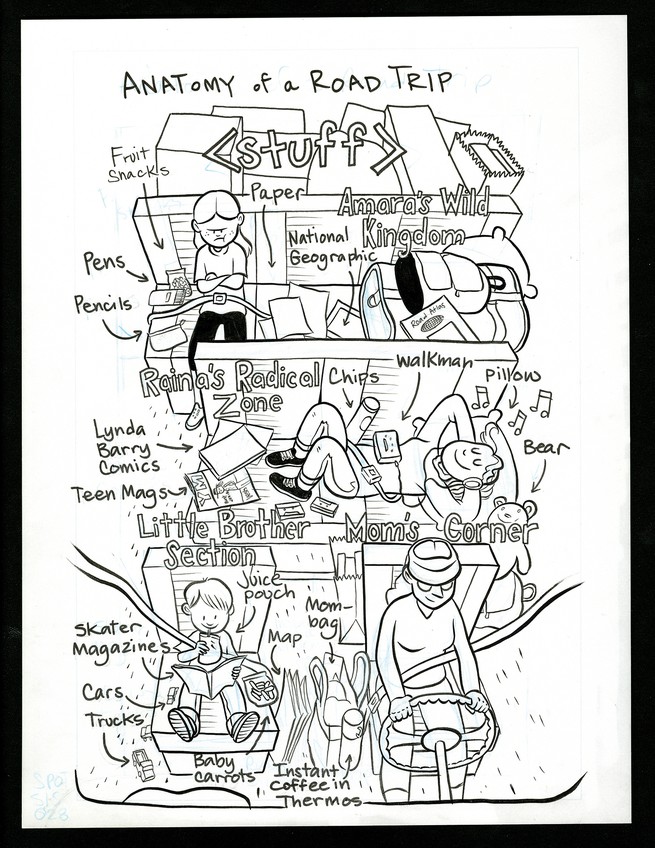 ANATOMY of a ROAD TRIP
<stuff>
Fruit
Snacks
Paper
Amara's Wild
Kingdom
National
Geographic
Pens
Pencils
Road Atlas
Raina's Radical
Zone
Chips
Walkman
Pillow
Lynda
Barry
Comics
Bear
Teen Mags
Little Brother
Section
Mom's Corner
Juice
pouch
Mom-
bag
Map
Skater
Magazines
Cars
Trucks
Baby
Carrots
Instant
Coffee in
Thermos